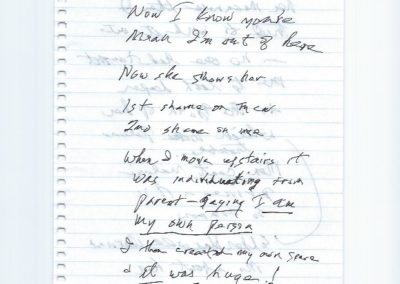 Now I know you're
mean I'm out of here
Now she shows her
1st shame on them
2nd shame on me
When I move upstairs it
was individuating from
parent - saying I am
my own person
I then created my own space
& it was huge!